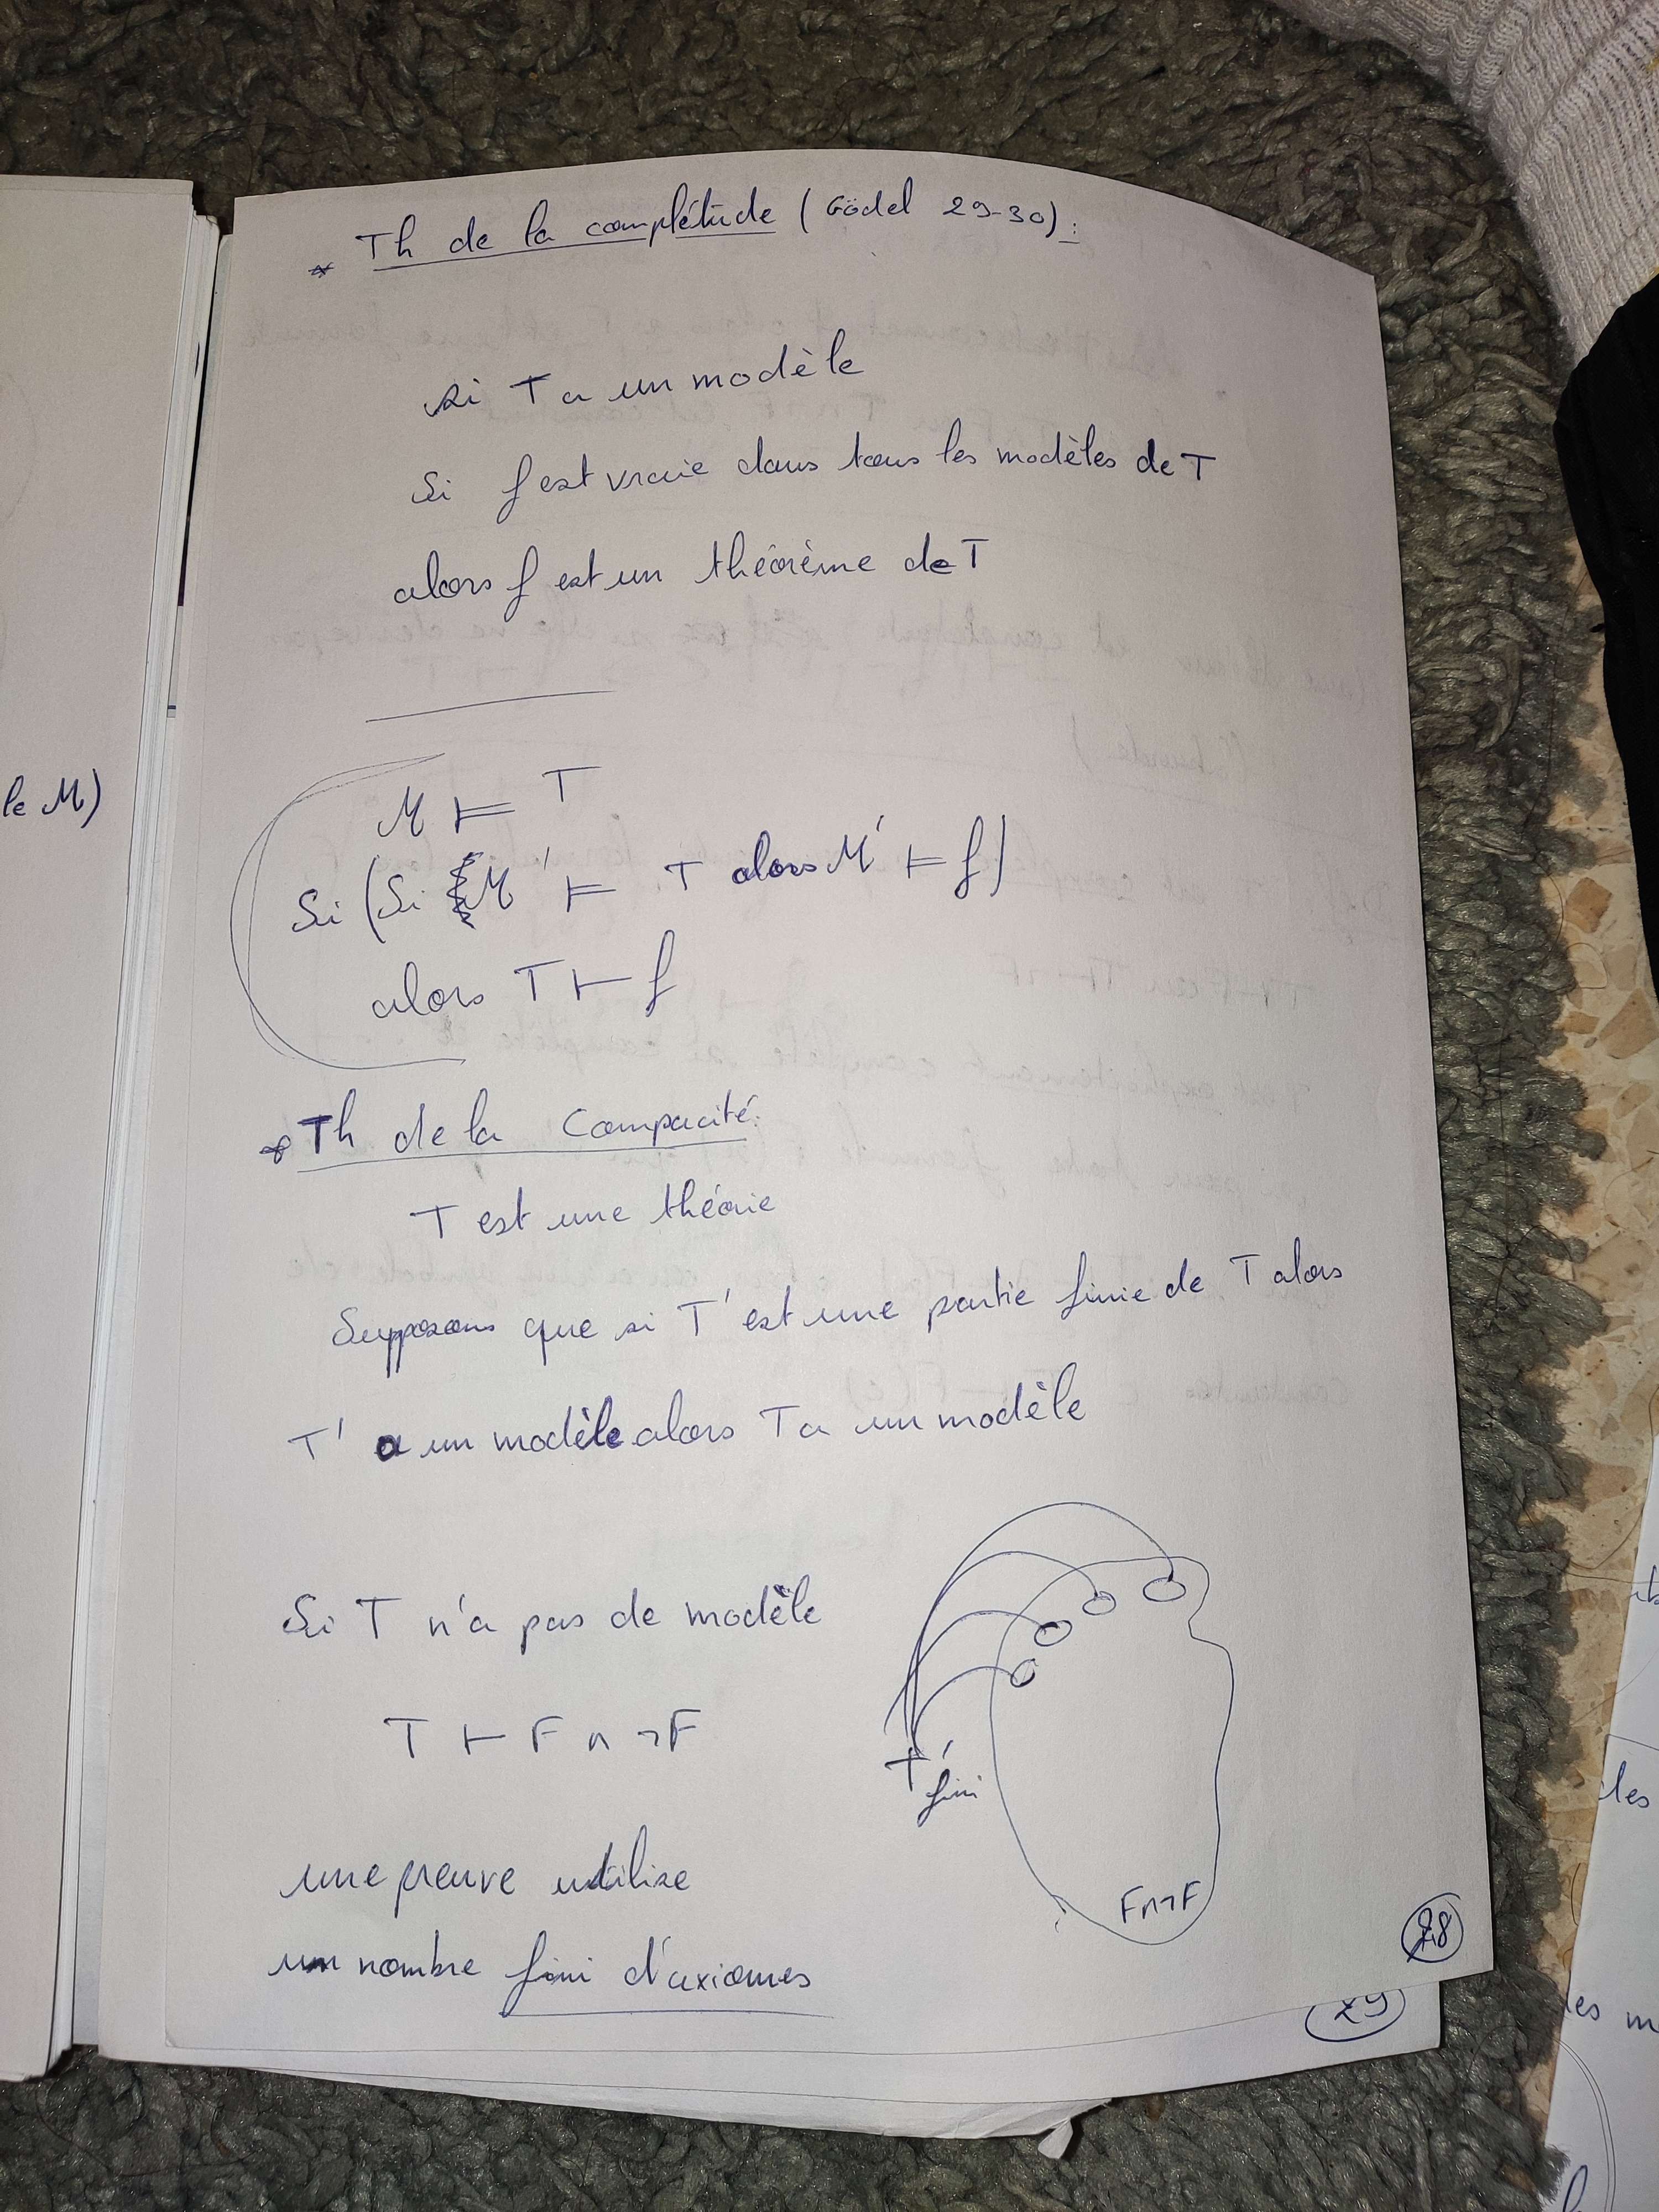 * Th de la complétude (Gödel 29-30) :
si T a un modèle
Si f est vraie dans tous les modèles de T
alors f est un théorème de T
M ⊨ T
Si (Si M' ⊨ T alors M' ⊨ f)
alors T ⊢ f
* Th de la Compacité:
T est une théorie
Supposons que si T' est une partie finie de T alors
T' a un modèle alors T a un modèle
Si T n'a pas de modèle
T ⊢ F ∧ ¬F
une preuve utilise
un nombre fini d'axiomes
T'
fini
F∧¬F
28
29
le M)
les m